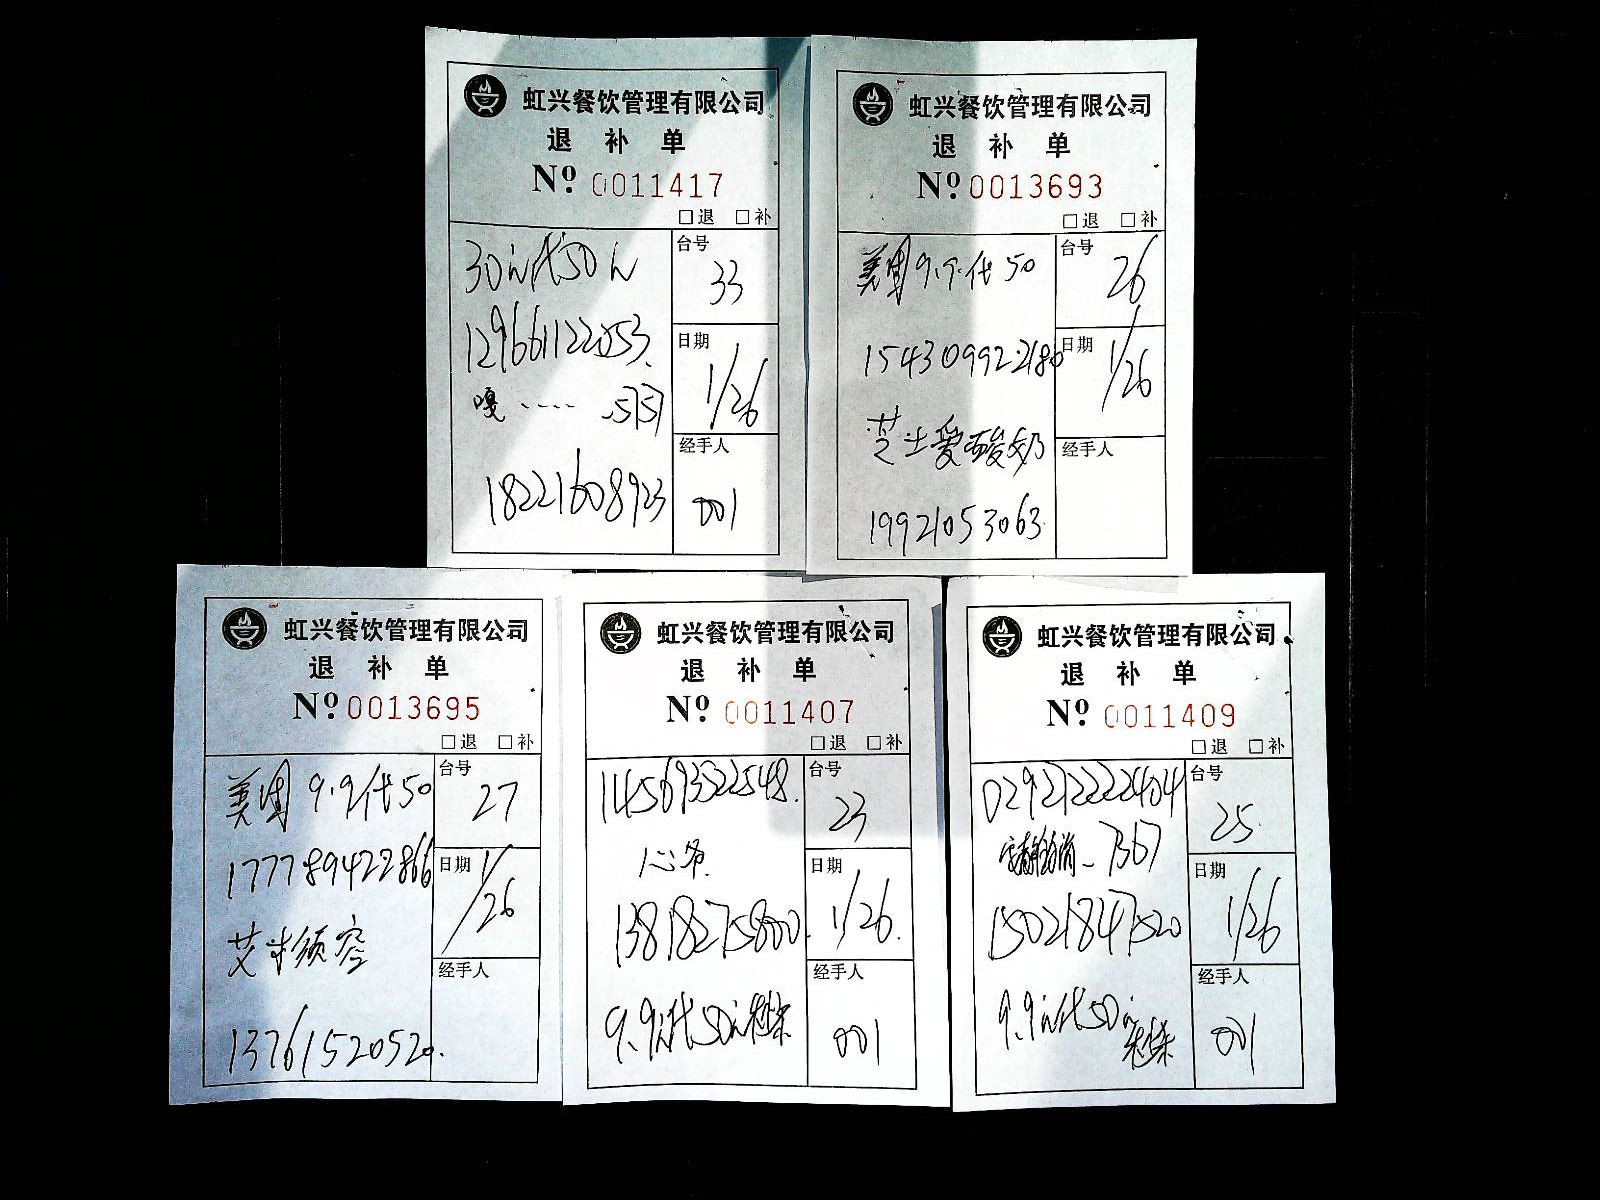 虹兴餐饮管理有限公司
退 补 单
Nº 0011417
□退 □补
30元代50元
台号
33
129661122053
日期
1/26
嘎
18221608923
经手人
001
虹兴餐饮管理有限公司
退 补 单
Nº 0013693
□退 □补
美团9.9代50
台号
26
154309922180
日期
1/26
芝士爱酸奶
经手人
19921053063
虹兴餐饮管理有限公司
退 补 单
Nº 0013695
□退 □补
美团9.9代50
台号
27
177789422866
日期
1/26
经手人
13761520520
虹兴餐饮管理有限公司
退 补 单
Nº 0011407
□退 □补
145693522548
台号
23
日期
1/26
13818275800
经手人
9.9元代50元
001
虹兴餐饮管理有限公司
退 补 单
Nº 0011409
□退 □补
029212222404
台号
25
7367
日期
1/26
15021847520
经手人
9.9元代50元
001